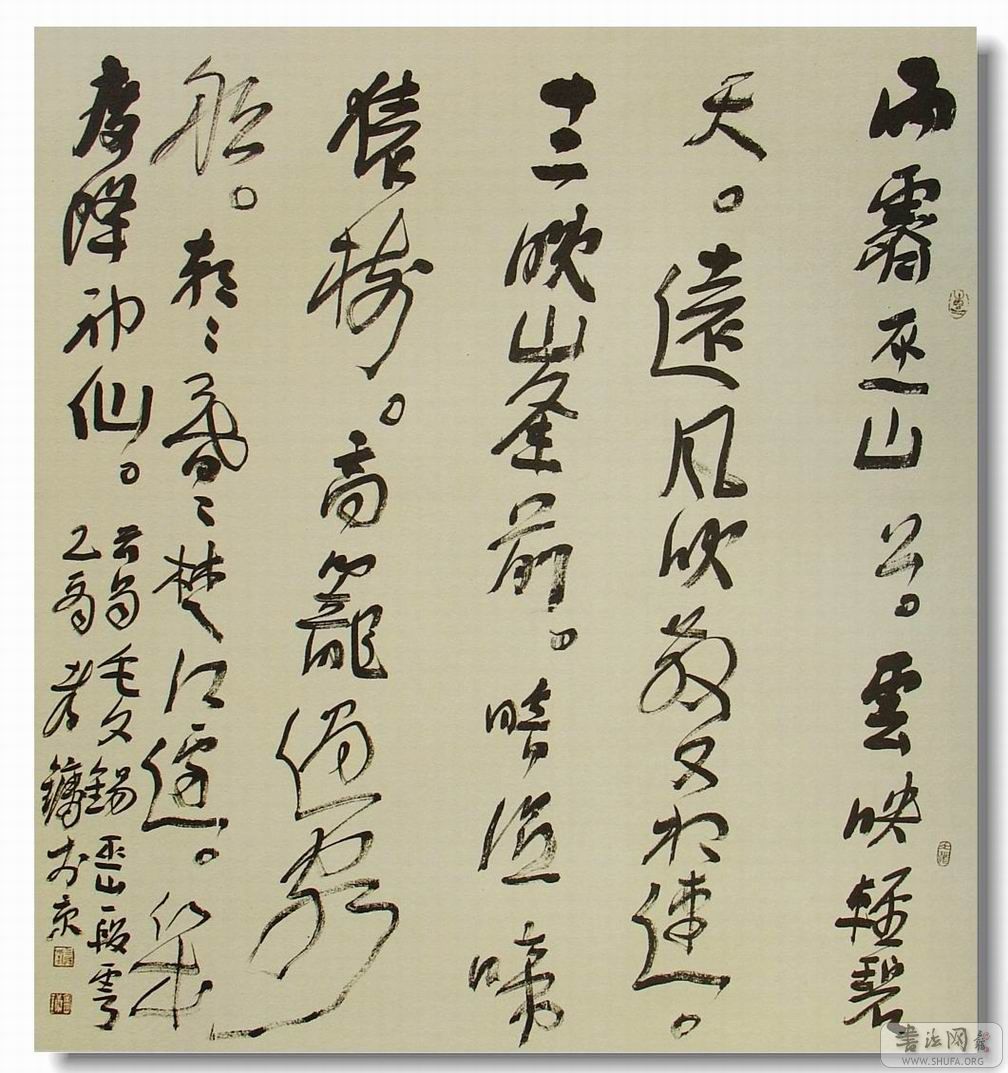 雨霽巫山上。雲映輕碧
天。遠風吹散又相連。
十二晚峯前。暗濕啼
猿樹。高籠過客
船。朝〻暮〻楚江邊。幾
度降神仙。
前蜀毛文錫巫山一段雲
乙酉 鏞於京
書法网
WWW.SHUFA.ORG